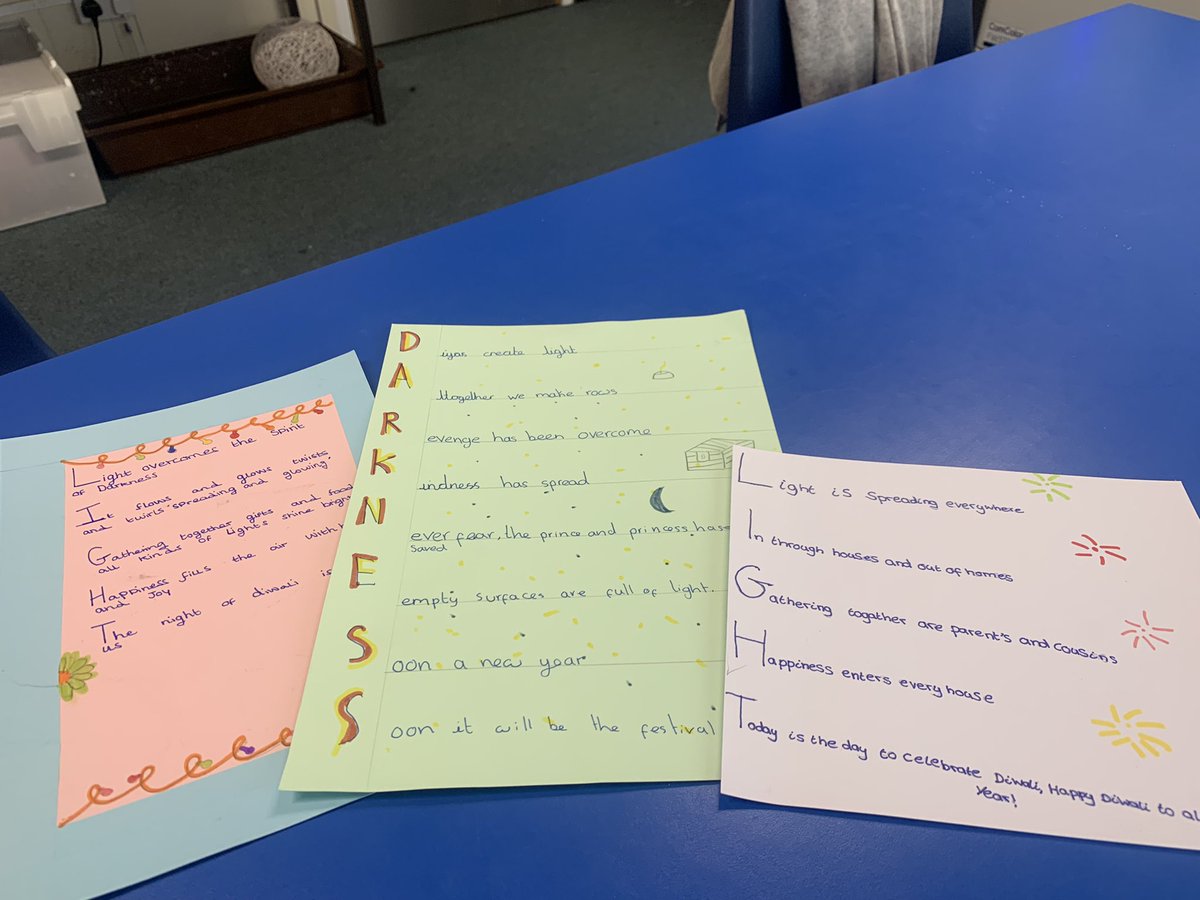 ComColor
Light overcomes the spirit
of Darkness
It flows and glows twists
and twirls spreading and glowing
Gathering together gifts and food
all kinds of lights shine brigh
Happiness fills the air with
and Joy
The night of diwali is
us
D iyas create light
A ltogether we make rows
R evenge has been overcome
K indness has spread
N ever fear, the prince and princess has
saved
E empty surfaces are full of light.
S oon a new year
S oon it will be the festival
Light is spreading everywhere
In through houses and out of homes
Gathering together are parent's and cousins
Happiness enters every house
Today is the day to celebrate Diwali, Happy Diwali to al
Year!